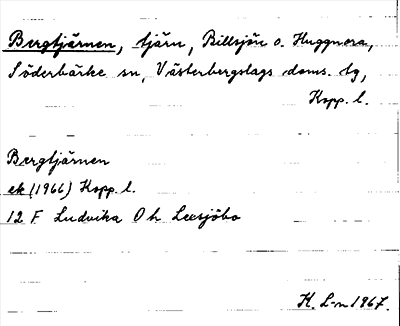 Bergtjärnen, tjärn, Billsjön o. Huggnora,
Söderbärke sn, Västerbergslags doms. tg,
Kopp. l.
Bergtjärnen
ek (1966) Kopp. l.
12 F Ludvika O h Leesjöbo
H. L-n 1967.